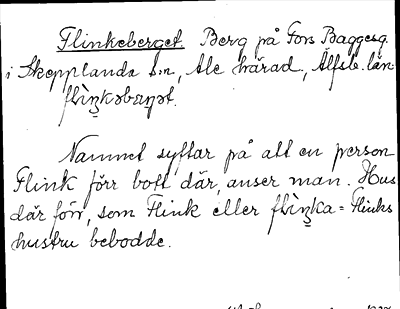 Flinkeberget. Berg på Fors Baggesg.
i Skepplanda s:n, Ale härad, Älfsb. län.
Namnet syftar på att en person
Flink förr bott där, anser man. Hus
där förr, som Flink eller flìŋka = Flinks
hustru bebodde.